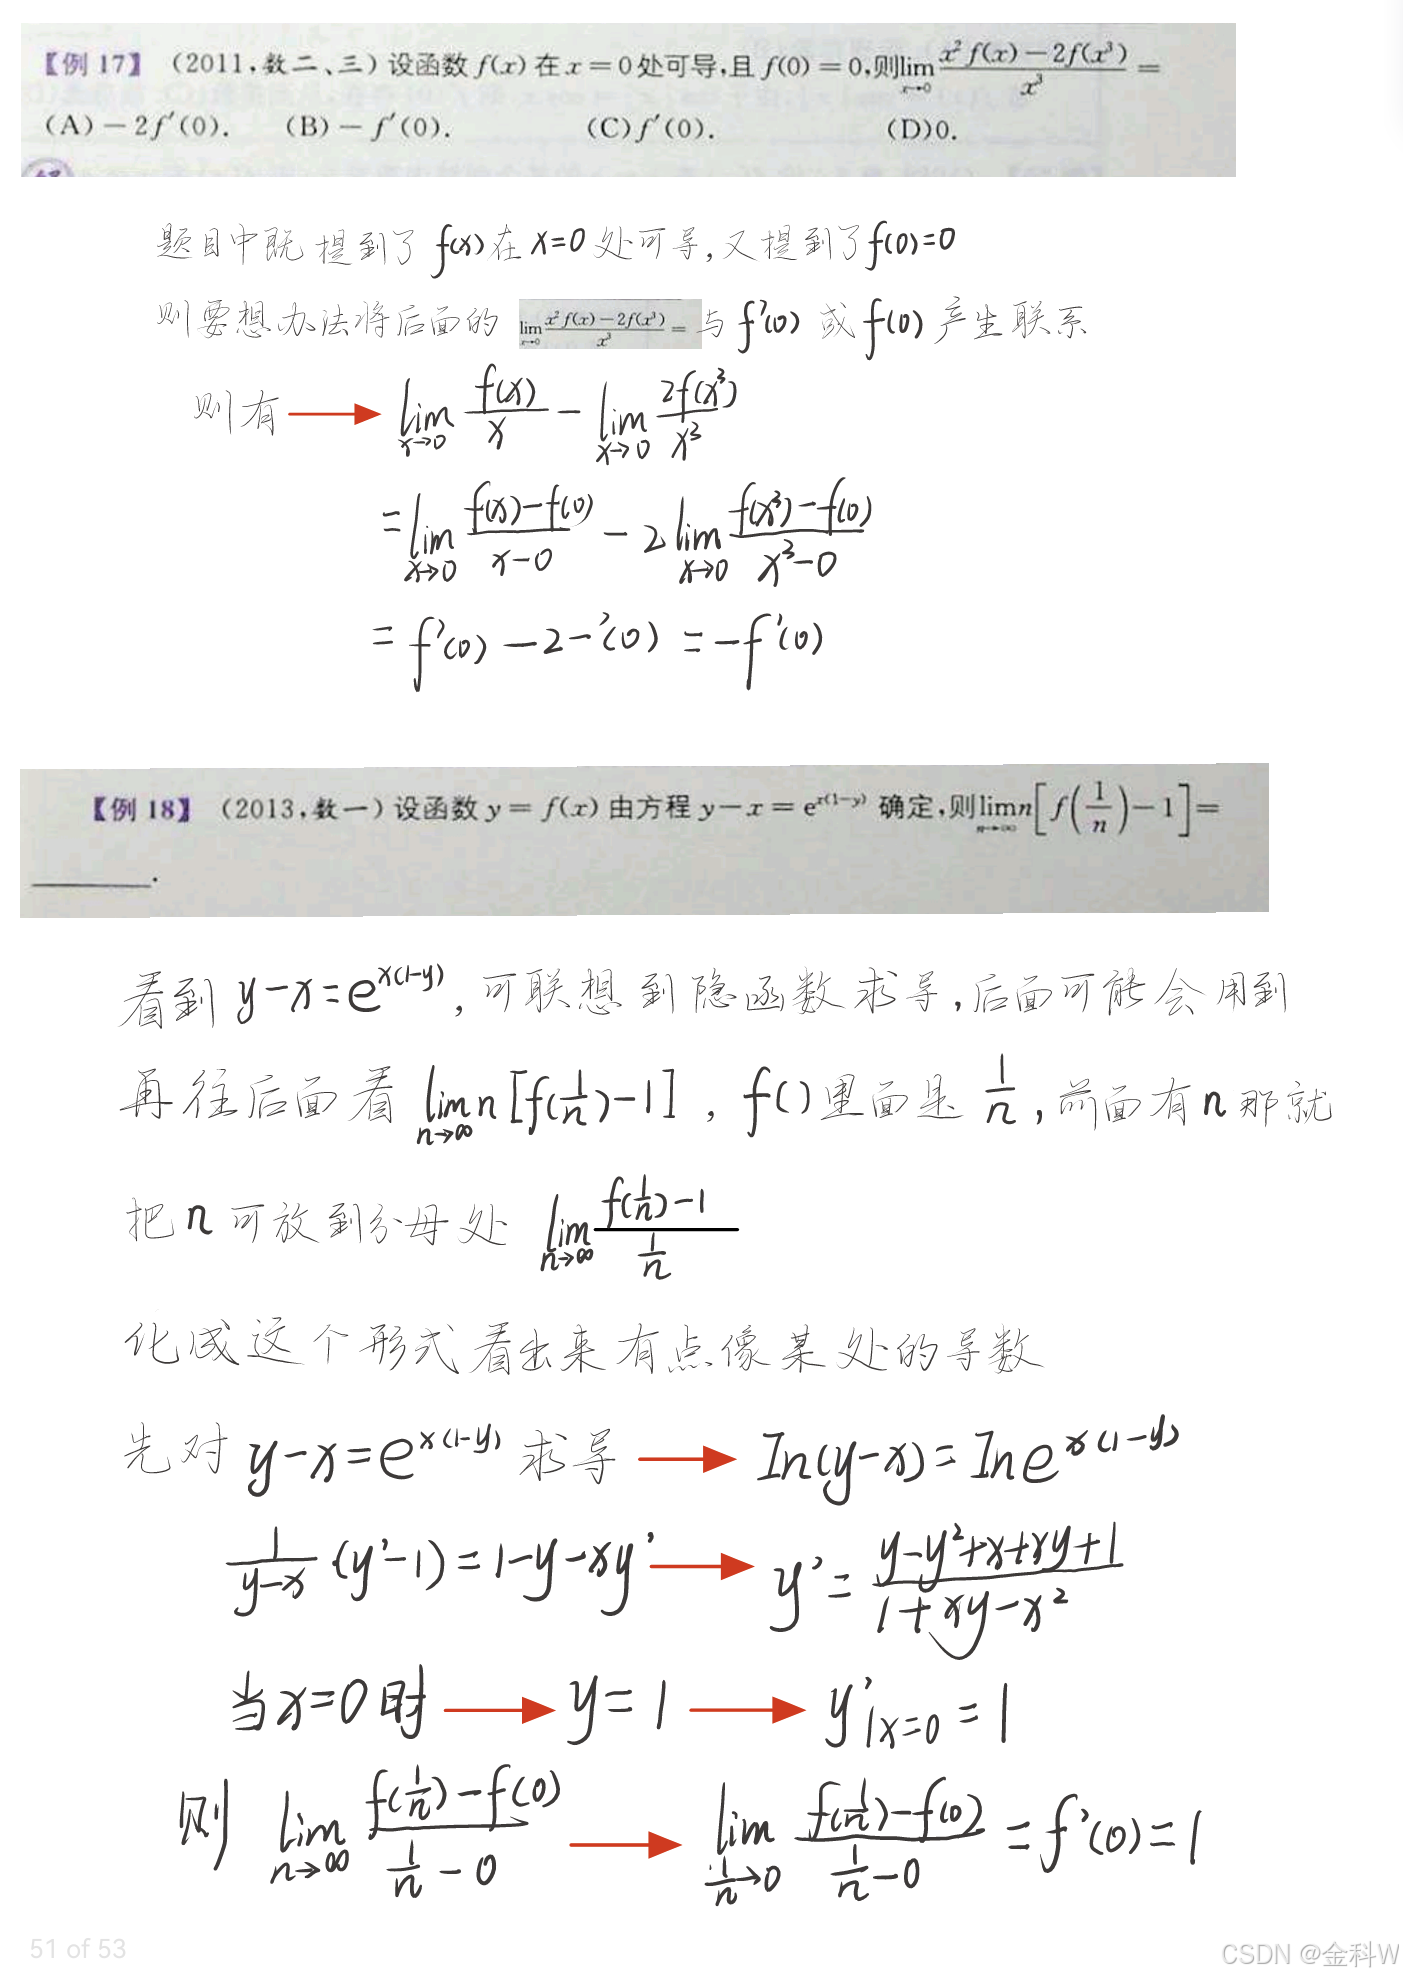 【例 17】 (2011,数二、三)设函数 f(x) 在 x=0 处可导,且 f(0)=0,则 lim_{x→0} (x²f(x)-2f(x³))/x³ =
(A)-2f′(0). (B)-f′(0). (C)f′(0). (D)0.
题目中既提到了 f(x) 在 x=0 处可导,又提到了 f(0)=0
则要想办法将后面的 lim_{x→0} (x²f(x)-2f(x³))/x³ = 与 f'(0) 或 f(0) 产生联系
则有 → lim_{x→0} f(x)/x - lim_{x→0} 2f(x³)/x³
= lim_{x→0} (f(x)-f(0))/(x-0) - 2 lim_{x→0} (f(x³)-f(0))/(x³-0)
= f'(0) - 2-'(0) = -f'(0)
【例 18】 (2013,数一)设函数 y=f(x) 由方程 y-x=e^{x(1-y)} 确定,则 lim_{n→∞} n[f(1/n)-1]=
______.
看到 y-x=e^{x(1-y)},可联想到隐函数求导,后面可能会用到
再往后面看 lim_{n→∞} n[f(1/n)-1],f()里面是 1/n,前面有 n 那就
把 n 可放到分母处 lim_{n→∞} (f(1/n)-1)/(1/n)
化成这个形式看出来有点像某处的导数
先对 y-x=e^{x(1-y)} 求导 → In(y-x)=Ine^{x(1-y)}
1/(y-x)·(y'-1)=1-y-xy' → y'=(y-y²+x+xy+1)/(1+xy-x²)
当 x=0 时 → y=1 → y'|x=0 =1
则 lim_{n→∞} (f(1/n)-f(0))/(1/n-0) → lim_{1/n→0} (f(1/n)-f(0))/(1/n-0) = f'(0)=1
51 of 53
CSDN @金科W